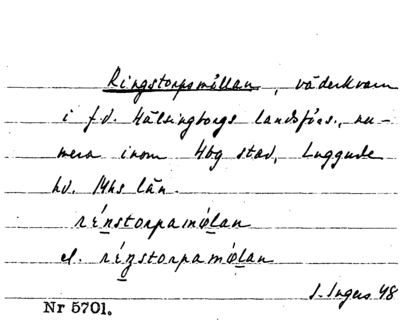 Ringstorpsmöllan, väderkvarn
i f.d. Hälsingborgs landsförs., nu-
mera inom Hbg stad, Luggude
hd. Mhs län.
rínstorpamǿlan
el. ríŋstorpamǿlan
I. Ingers 48
Nr 5701.